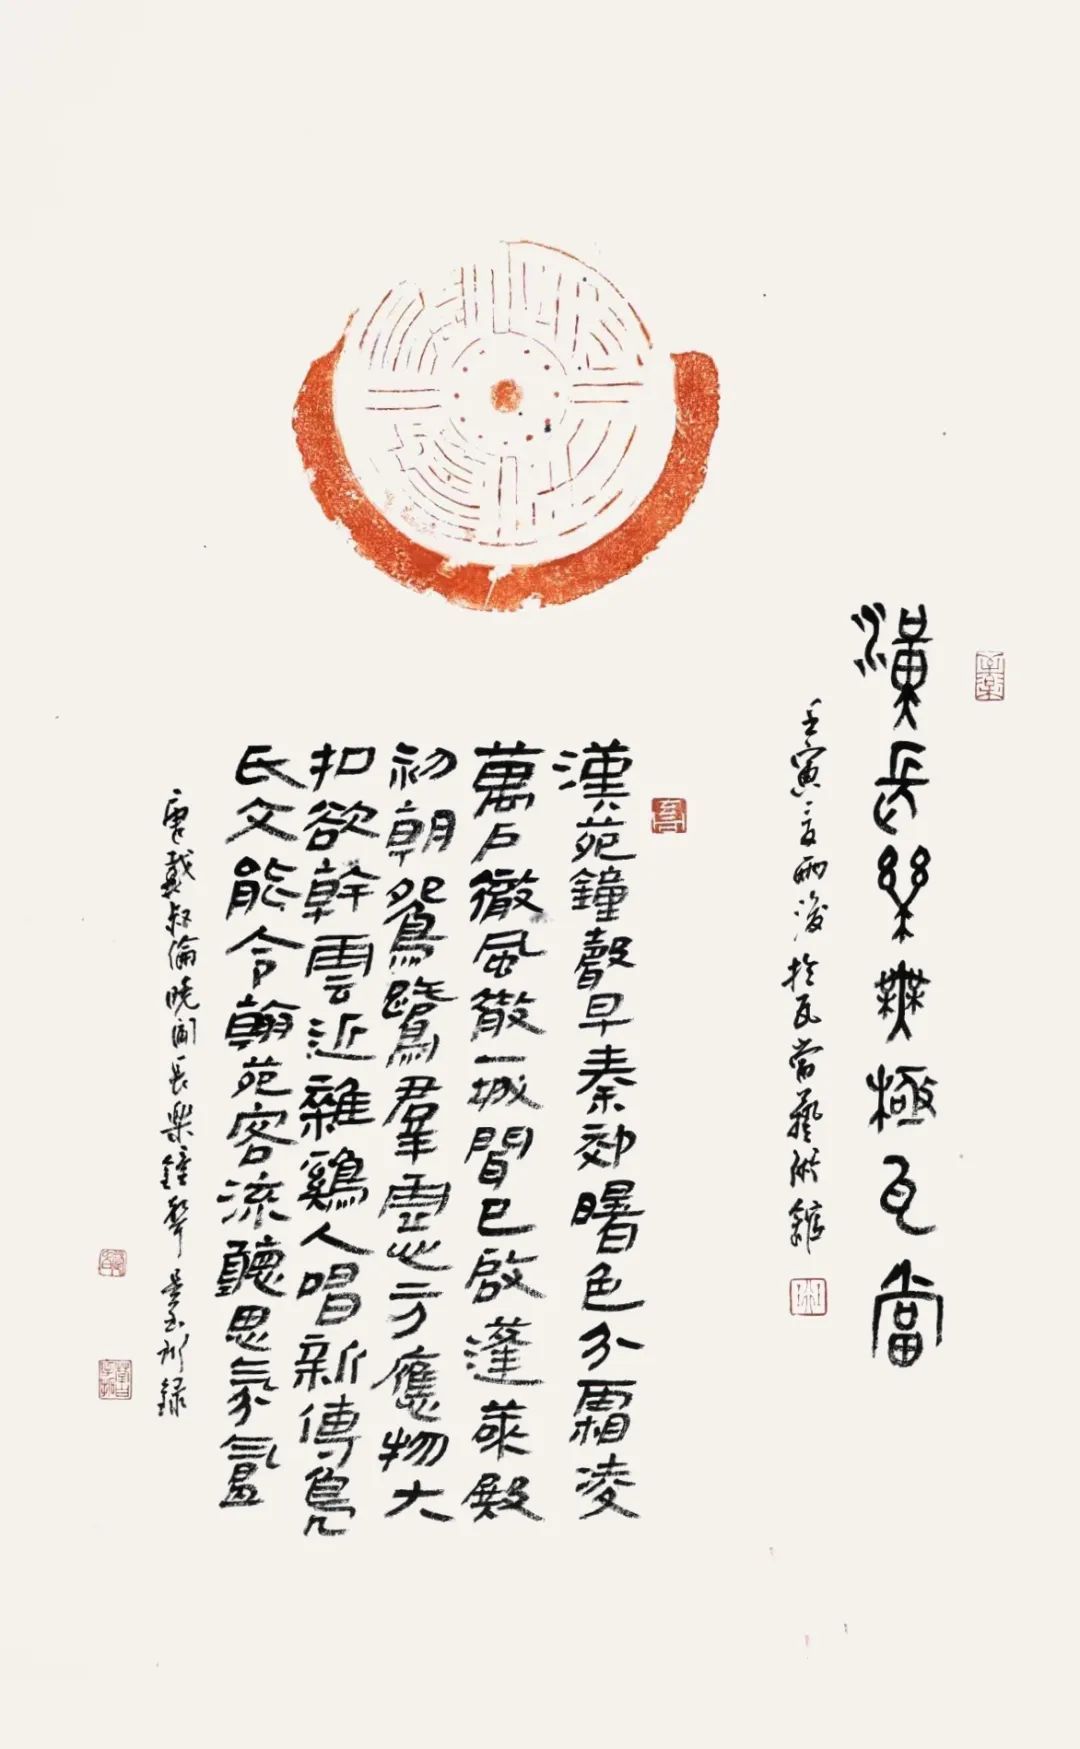 漢長樂無極瓦當
壬寅夏雨後於瓦當藝術館
漢苑鐘聲早秦郊曙色分霜凌
萬戶徹風散一城聞已啟蓬萊殿
初朝鴛鷺羣虛心方應物大
扣欲幹雲近雜鷄人唱新傳鳧
氏文能令翰苑客流聽思氛氳
唐戴叔倫曉聞長樂鐘聲 錄